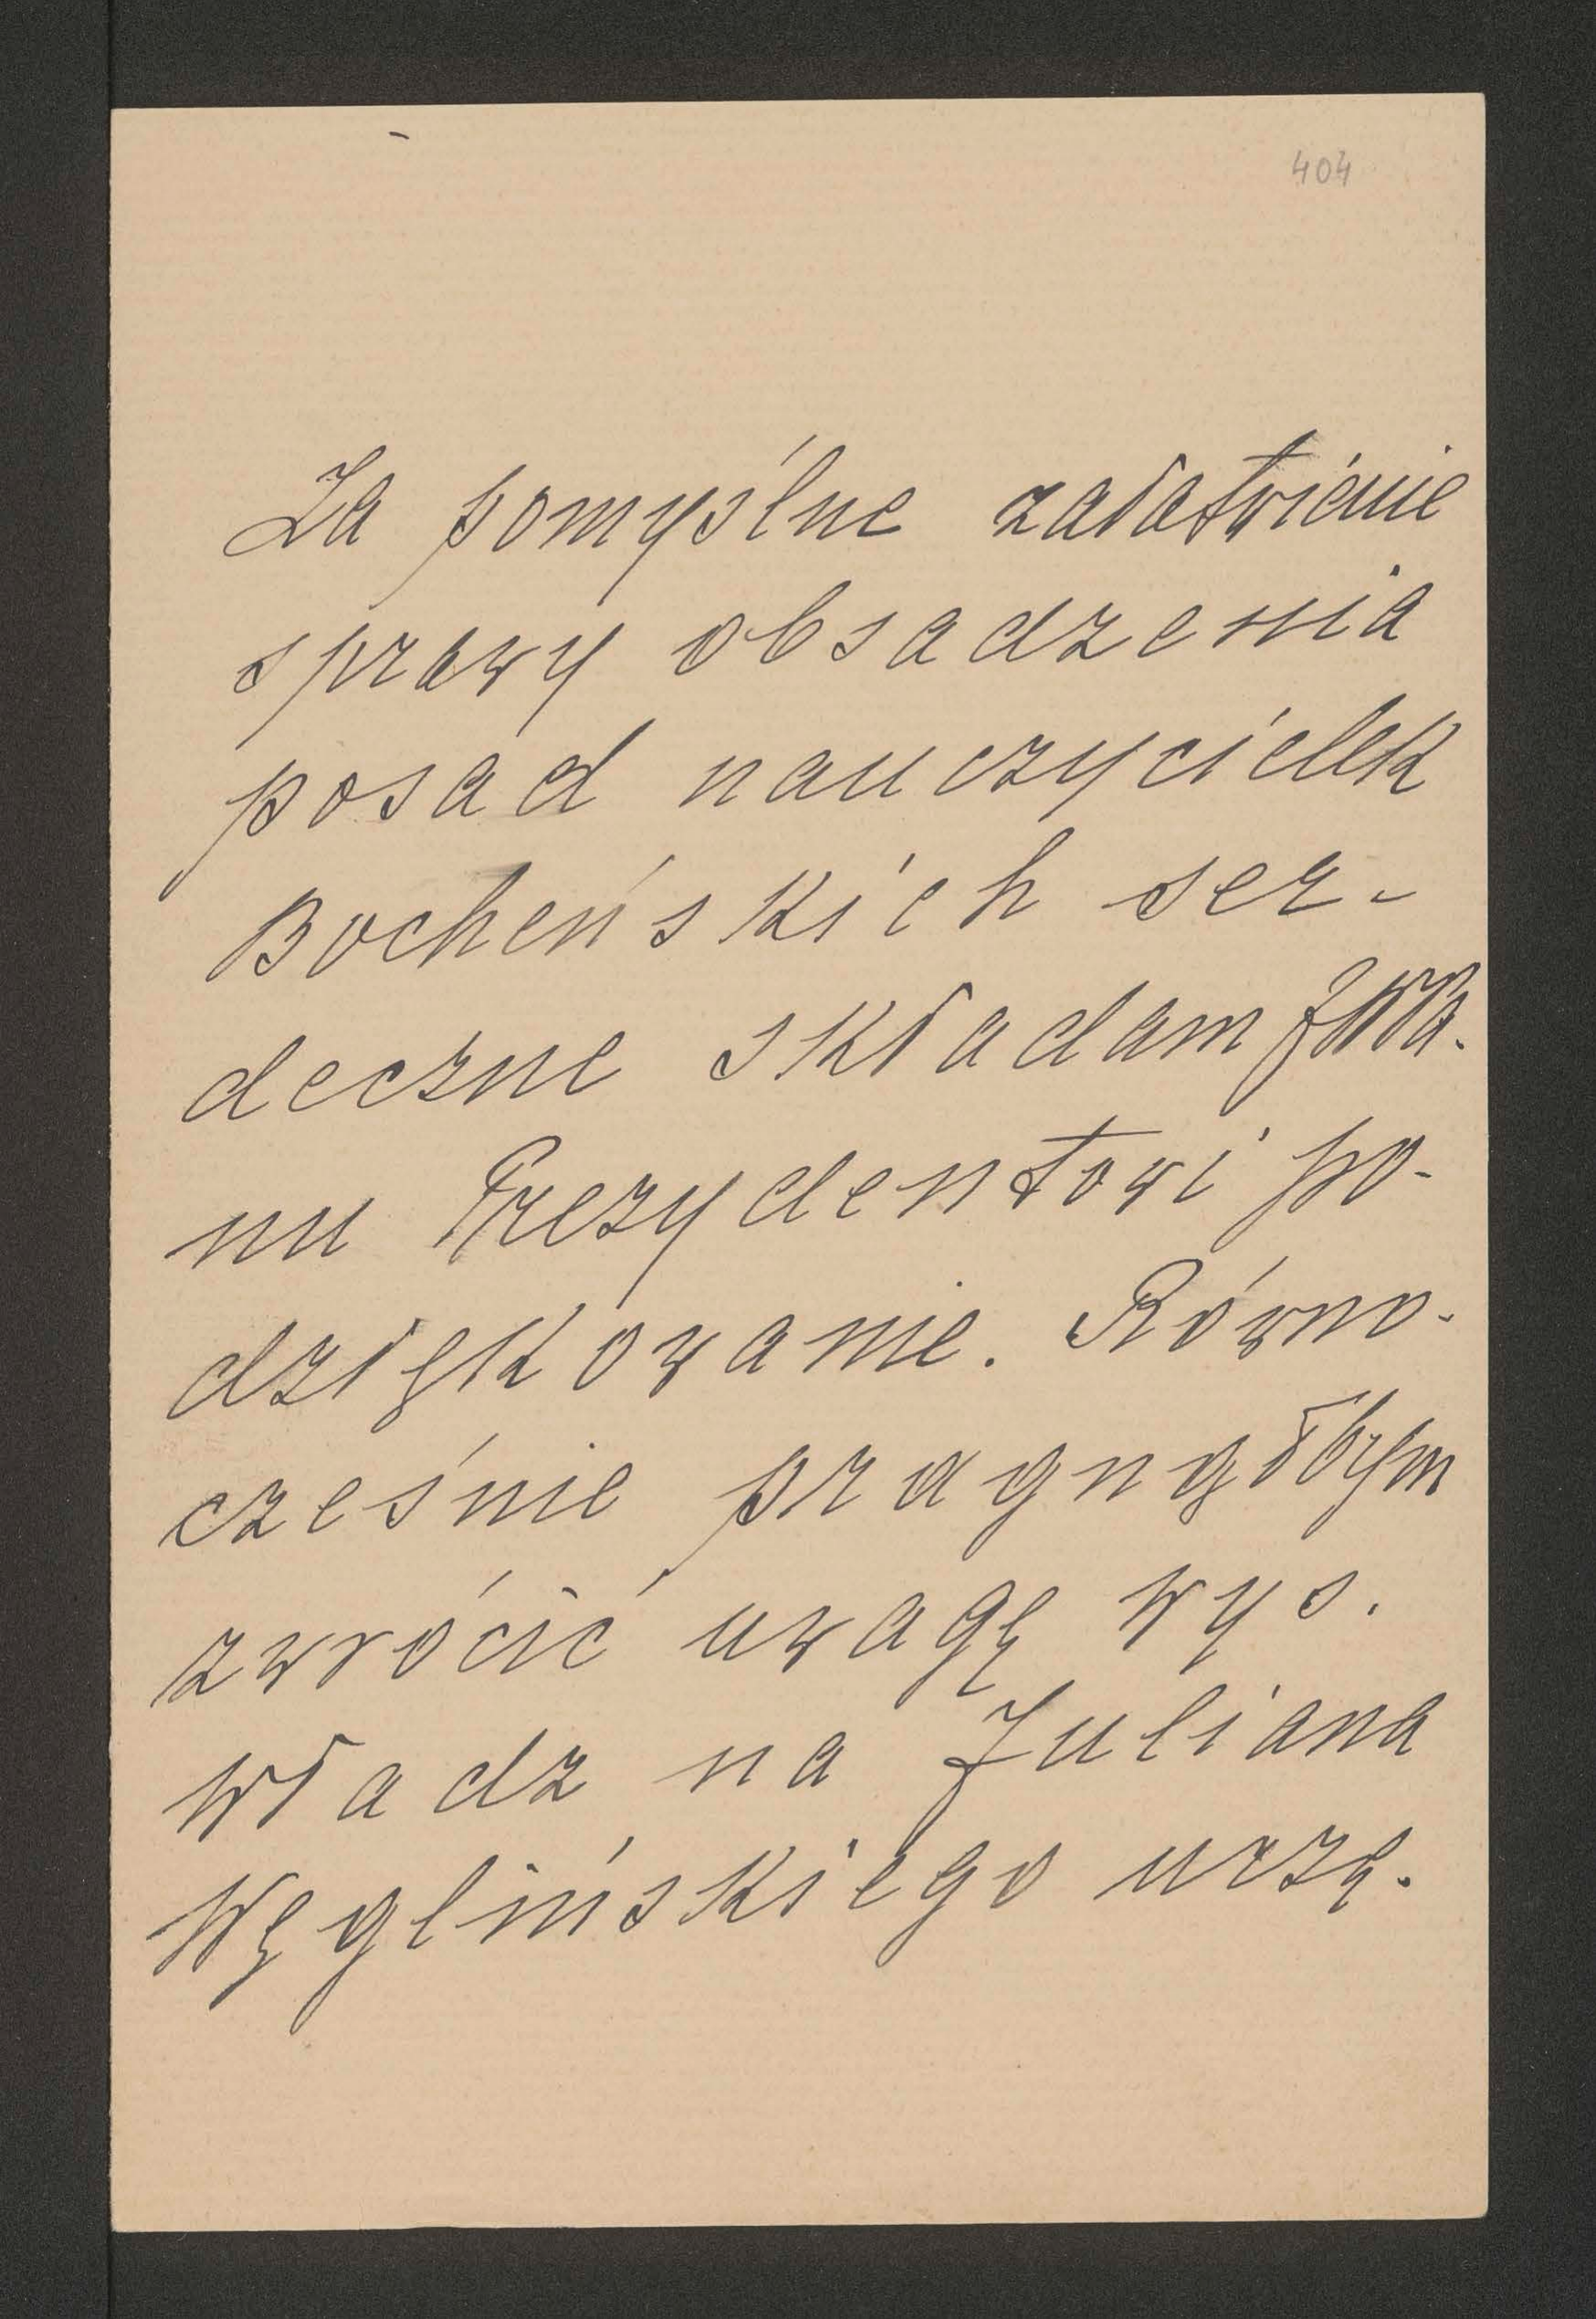 404
Za pomyślne załatwienie
sprawy obsadzenia
posad nauczycielek
Bocheńskich ser-
deczne składam JWPa.
nu Prezydentowi po-
dziękowanie. Równo-
cześnie pragnąłbym
zwrócić uwagę wys.
władz na Juliana
Węglińskiego urzę.